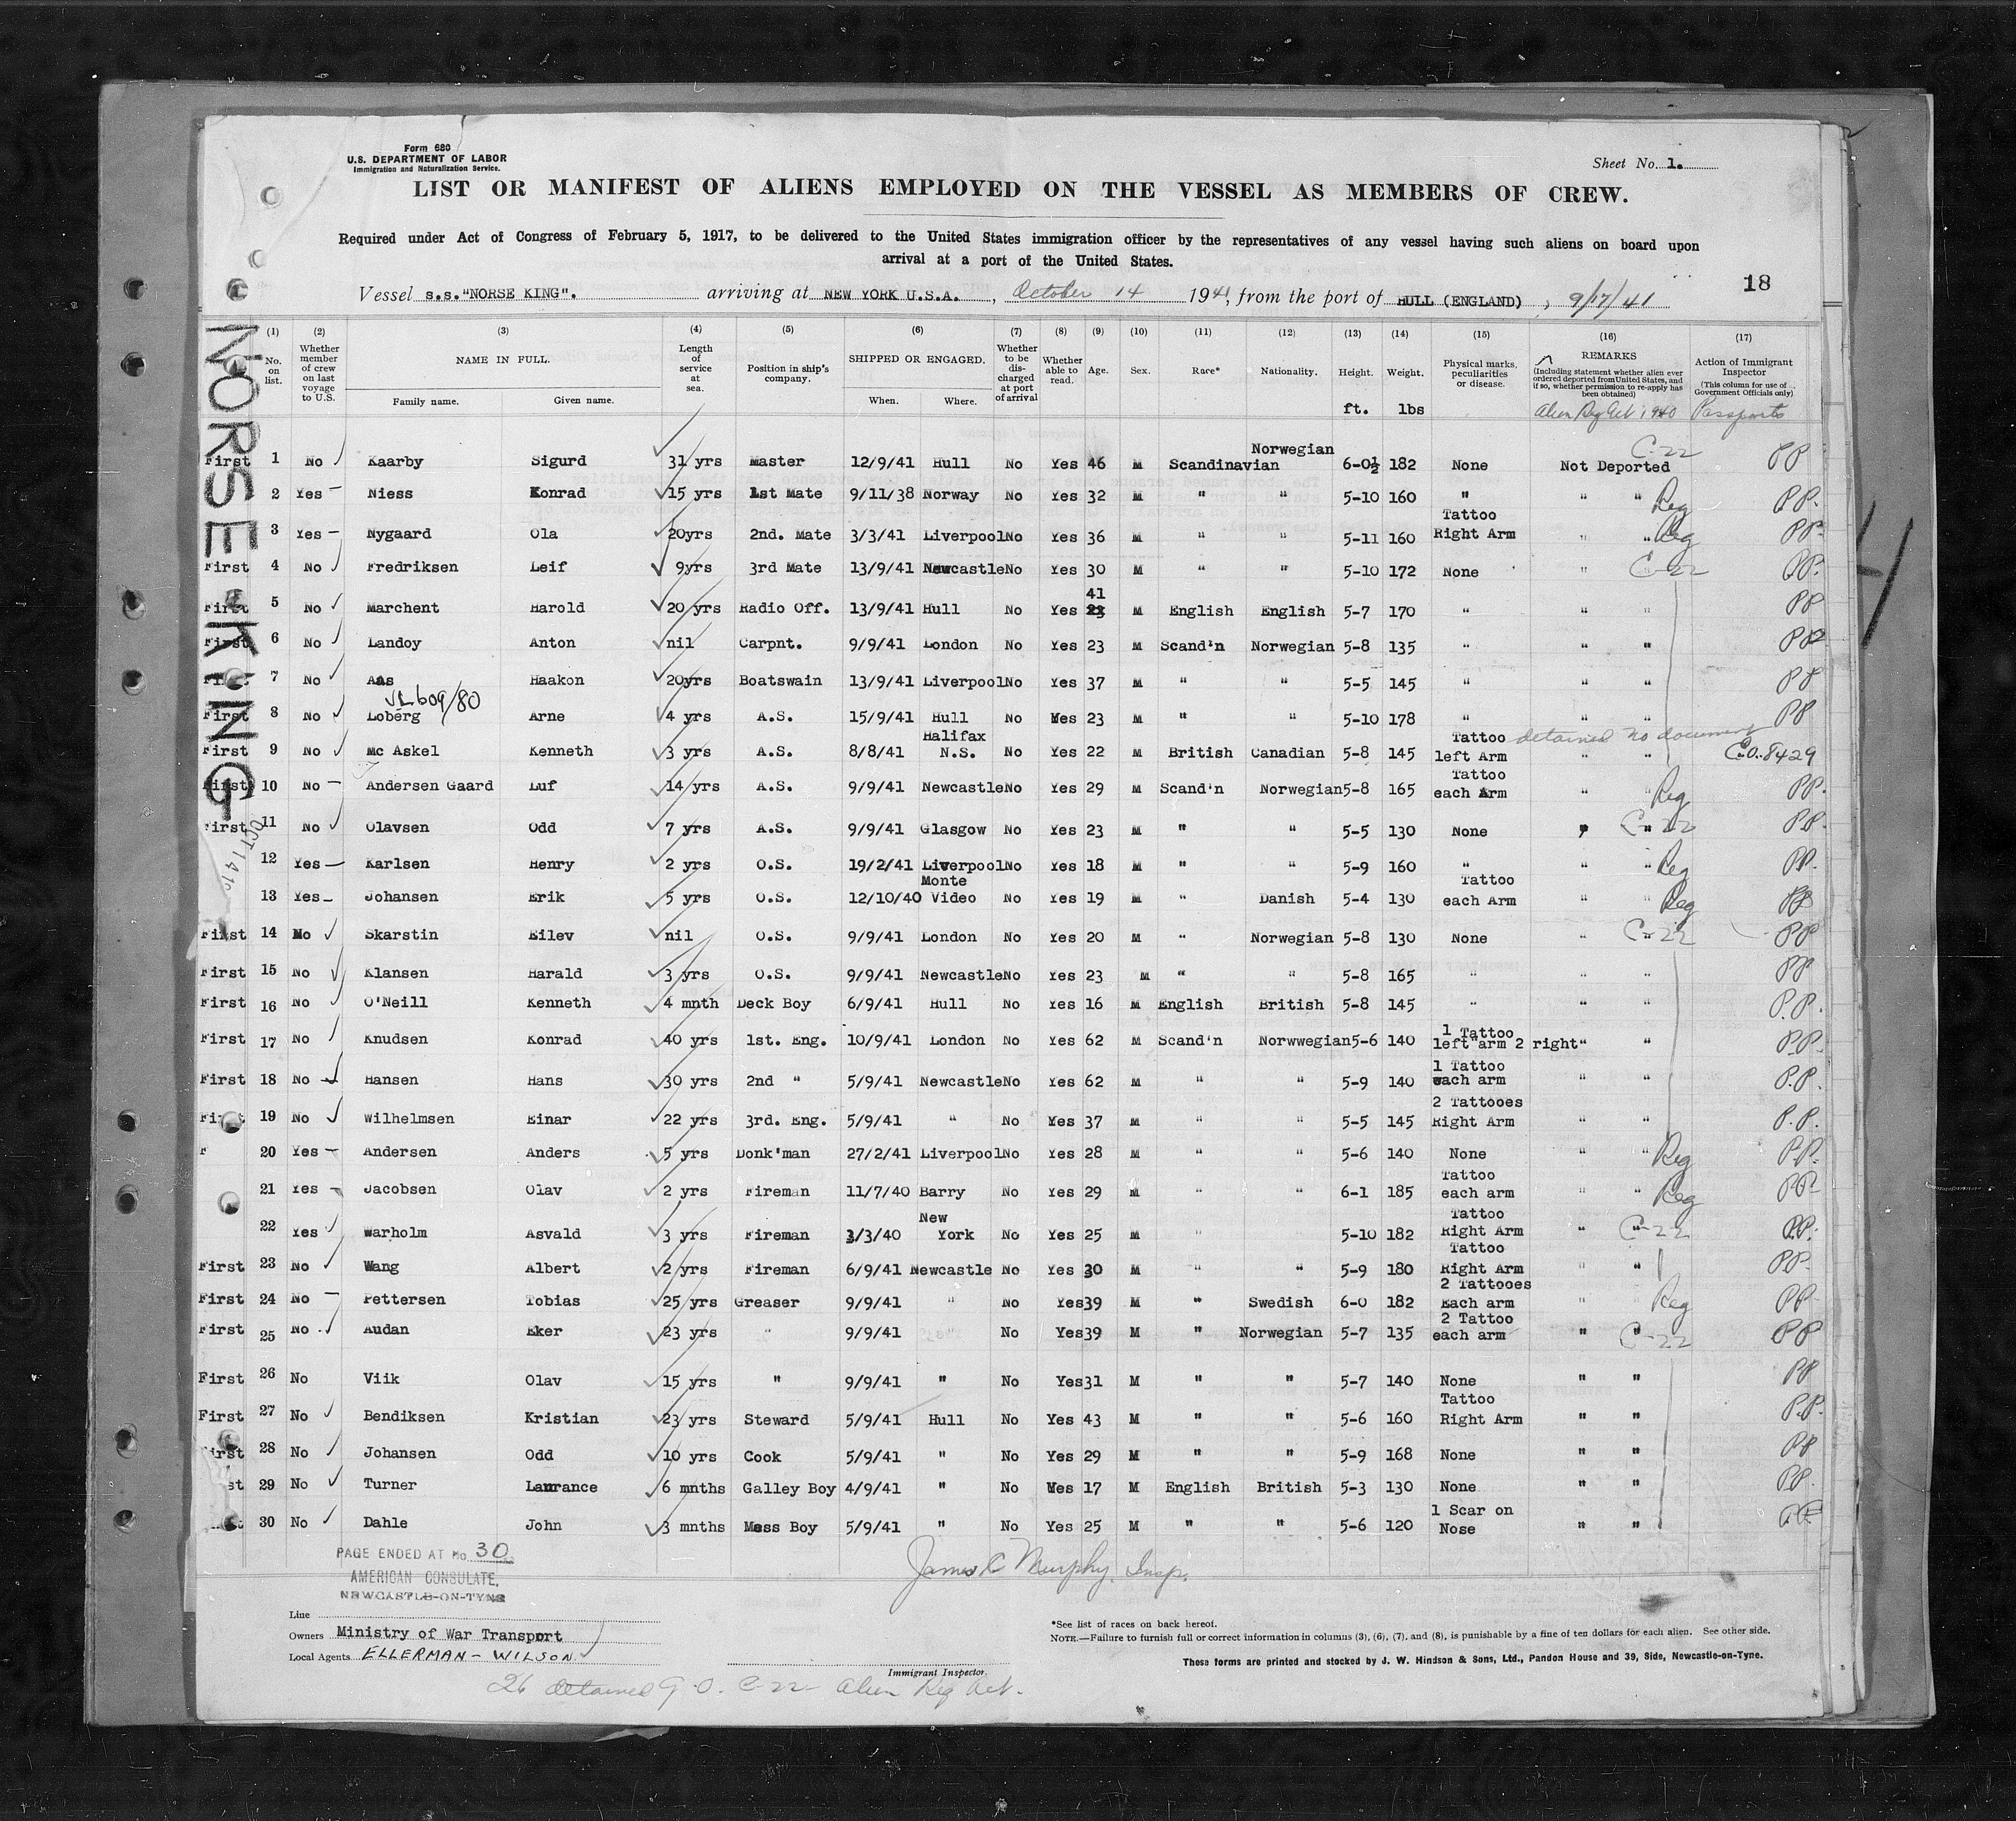 Form 680
U.S. DEPARTMENT OF LABOR
Immigration and Naturalization Service.
Sheet No. 1.
LIST OR MANIFEST OF ALIENS EMPLOYED ON THE VESSEL AS MEMBERS OF CREW.
Required under Act of Congress of February 5, 1917, to be delivered to the United States immigration officer by the representatives of any vessel having such aliens on board upon
arrival at a port of the United States.
18
Vessel s.s."NORSE KING". arriving at NEW YORK U.S.A., October 14 1941, from the port of HULL (ENGLAND), 9/17/41
NORSE KING
OCT 14 19
(1) (2) (3) (4) (5) (6) (7) (8) (9) (10) (11) (12) (13) (14) (15) (16) (17)
No. on list. Whether member of crew on last voyage to U.S. NAME IN FULL. Family name. Given name. Length of service at sea. Position in ship's company. SHIPPED OR ENGAGED. When. Where. Whether to be discharged at port of arrival Whether able to read. Age. Sex. Race* Nationality. Height. Weight. Physical marks, peculiarities or disease. REMARKS (Including statement whether alien ever ordered deported from United States, and if so, whether permission to re-apply has been obtained) Action of Immigrant Inspector (This column for use of Government Officials only)
ft. lbs Alien Reg Act 1940 Passports
First 1 No Kaarby Sigurd 31 yrs Master 12/9/41 Hull No Yes 46 M Scandinavian Norwegian 6-0½ 182 None Not Deported C-22 PP
2 Yes Niess Konrad 15 yrs 1st Mate 9/11/38 Norway No Yes 32 M " " 5-10 160 " " " Reg PP.
3 Yes Nygaard Ola 20yrs 2nd. Mate 3/3/41 Liverpool No Yes 36 M " " 5-11 160 Tattoo Right Arm " " Reg PP.
First 4 No Fredriksen Leif 9yrs 3rd Mate 13/9/41 Newcastle No Yes 30 M " " 5-10 172 None " C-22 PP.
First 5 No Marchent Harold 20 yrs Radio Off. 13/9/41 Hull No Yes 41 23 M English English 5-7 170 " " " PP
First 6 No Landoy Anton nil Carpnt. 9/9/41 London No Yes 23 M Scand'n Norwegian 5-8 135 " " " PP
First 7 No Aas Haakon 20yrs Boatswain 13/9/41 Liverpool No Yes 37 M " " 5-5 145 " " " PP
609/80
First 8 No Loberg Arne 4 yrs A.S. 15/9/41 Hull No Yes 23 M " " 5-10 178 " " " PP
First 9 No Mc Askel Kenneth 3 yrs A.S. 8/8/41 Halifax N.S. No Yes 22 M British Canadian 5-8 145 Tattoo left Arm " " detained no document C.O. 8429
First 10 No Andersen Gaard Luf 14 yrs A.S. 9/9/41 Newcastle No Yes 29 M Scand'n Norwegian 5-8 165 Tattoo each Arm " " Reg PP.
First 11 No Olavsen Odd 7 yrs A.S. 9/9/41 Glasgow No Yes 23 M " " 5-5 130 None " " C-22 PP.
12 Yes Karlsen Henry 2 yrs O.S. 19/2/41 Liverpool No Yes 18 M " " 5-9 160 " " " Reg PP.
13 Yes Johansen Erik 5 yrs O.S. 12/10/40 Monte Video No Yes 19 M " Danish 5-4 130 Tattoo each Arm " " Reg PP
First 14 No Skarstin Eilev nil O.S. 9/9/41 London No Yes 20 M " Norwegian 5-8 130 None " " C-22 PP
First 15 No Klansen Harald 3 yrs O.S. 9/9/41 Newcastle No Yes 23 M " " 5-8 165 " " " PP
First 16 No O'Neill Kenneth 4 mnth Deck Boy 6/9/41 Hull No Yes 16 M English British 5-8 145 " " " P.P.
First 17 No Knudsen Konrad 40 yrs 1st. Eng. 10/9/41 London No Yes 62 M Scand'n Norwwegian 5-6 140 1 Tattoo left arm 2 right " " P.P.
First 18 No Hansen Hans 30 yrs 2nd " 5/9/41 Newcastle No Yes 62 M " " 5-9 140 1 Tattoo each arm " " P.P.
First 19 No Wilhelmsen Einar 22 yrs 3rd. Eng. 5/9/41 " No Yes 37 M " " 5-5 145 2 Tattooes Right Arm " " P.P.
20 Yes Andersen Anders 5 yrs Donk'man 27/2/41 Liverpool No Yes 28 M " " 5-6 140 None " " Reg P.P.
21 Yes Jacobsen Olav 2 yrs Fireman 11/7/40 Barry No Yes 29 M " " 6-1 185 Tattoo each arm " " Reg PP
22 Yes Warholm Asvald 3 yrs Fireman 3/3/40 New York No Yes 25 M " " 5-10 182 Tattoo Right Arm " " C-22 P.P.
First 23 No Wang Albert 2 yrs Fireman 6/9/41 Newcastle No Yes 30 M " " 5-9 180 Tattoo Right Arm " " PP.
First 24 No Pettersen Tobias 25 yrs Greaser 9/9/41 " No Yes 39 M " Swedish 6-0 182 2 Tattooes Each arm " Reg PP.
First 25 No Audan Eker 23 yrs " 9/9/41 No Yes 39 M " Norwegian 5-7 135 2 Tattoo each arm " " C-22 PP
First 26 No Viik Olav 15 yrs " 9/9/41 " No Yes 31 M " " 5-7 140 None " " PP
First 27 No Bendiksen Kristian 23 yrs Steward 5/9/41 Hull No Yes 43 M " " 5-6 160 Tattoo Right Arm " " P.P.
First 28 No Johansen Odd 10 yrs Cook 5/9/41 " No Yes 29 M " " 5-9 168 None " " PP
st 29 No Turner Laurance 6 mnths Galley Boy 4/9/41 " No Yes 17 M English British 5-3 130 None " " P.P.
30 No Dahle John 3 mnths Mess Boy 5/9/41 " No Yes 25 M " " 5-6 120 1 Scar on Nose " "
PAGE ENDED AT No. 30
AMERICAN CONSULATE,
NEWCASTLE-ON-TYNE
James C Murphy Insp.
Line
Owners Ministry of War Transport
Local Agents ELLERMAN - WILSON
Immigrant Inspector.
*See list of races on back hereof.
NOTE.—Failure to furnish full or correct information in columns (3), (6), (7), and (8), is punishable by a fine of ten dollars for each alien. See other side.
These forms are printed and stocked by J. W. Hindson & Sons, Ltd., Pandon House and 39, Side, Newcastle-on-Tyne.
26 detained G.O. C-22 Alien Reg Act.